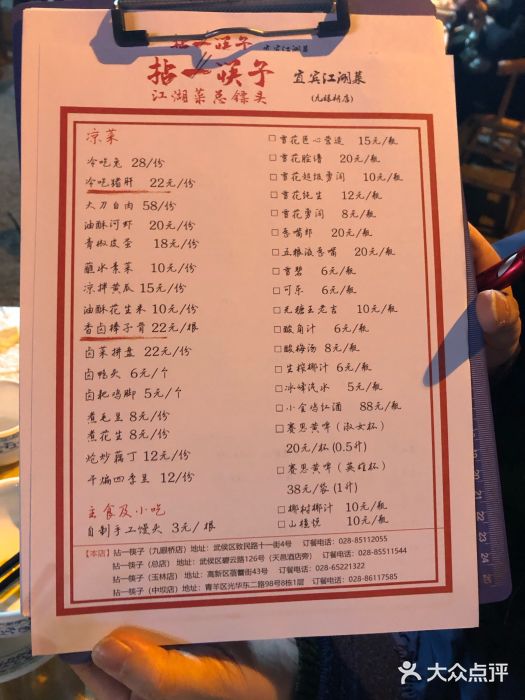 拈一筷子 宜宾江湖菜
拈一筷子 宜宾江湖菜
江湖菜总镖头 (九眼桥店)
凉菜
冷吃兔 28/份
冷吃猪肝 22元/份
大刀白肉 58/份
油酥河虾 20元/份
青椒皮蛋 18元/份
蘸水素菜 10元/份
凉拌黄瓜 15元/份
油酥花生米 10元/份
香卤棒子骨 22元/根
卤菜拼盘 22元/份
卤鸭头 6元/个
卤耙鸡脚 5元/个
煮毛豆 8元/份
煮花生 8元/份
炝炒藕丁 12元/份
干煸四季豆 12/份
主食及小吃
自制手工馒头 3元/根
□ 雪花匠心营造 15元/瓶
□ 雪花脸谱 20元/瓶
□ 雪花超级勇闯 10元/瓶
□ 雪花纯生 12元/瓶
□ 雪花勇闯 8元/瓶
□ 歪嘴郎 20元/瓶
□ 五粮液歪嘴 20元/瓶
□ 雪碧 6元/瓶
□ 可乐 6元/瓶
□ 无糖王老吉 10元/瓶
□ 酸角汁 6元/瓶
□ 酸梅汤 8元/瓶
□ 生榨椰汁 6元/瓶
□ 冰峰汽水 5元/瓶
□ 小金鸡红酒 88元/瓶
□ 赛恩黄啤 (淑女杯)
20元/杯 (0.5升)
□ 赛恩黄啤 (英雄杯)
38元/袋 (1升)
□ 椰树椰汁 10元/瓶
□ 山楂悦 10元/瓶
【本店】拈一筷子（九眼桥店）地址：武侯区致民路十一街4号 订餐电话：028-85112055
拈一筷子（总店）地址：武侯区碧云路126号（天邑酒店旁） 订餐电话：028-85511544
拈一筷子（玉林店）地址：高新区蓓蕾街43号 订餐电话：028-65221322
拈一筷子（中坝店）地址：青羊区光华东二路98号8栋1层 订餐电话：028-86117585
大众点评